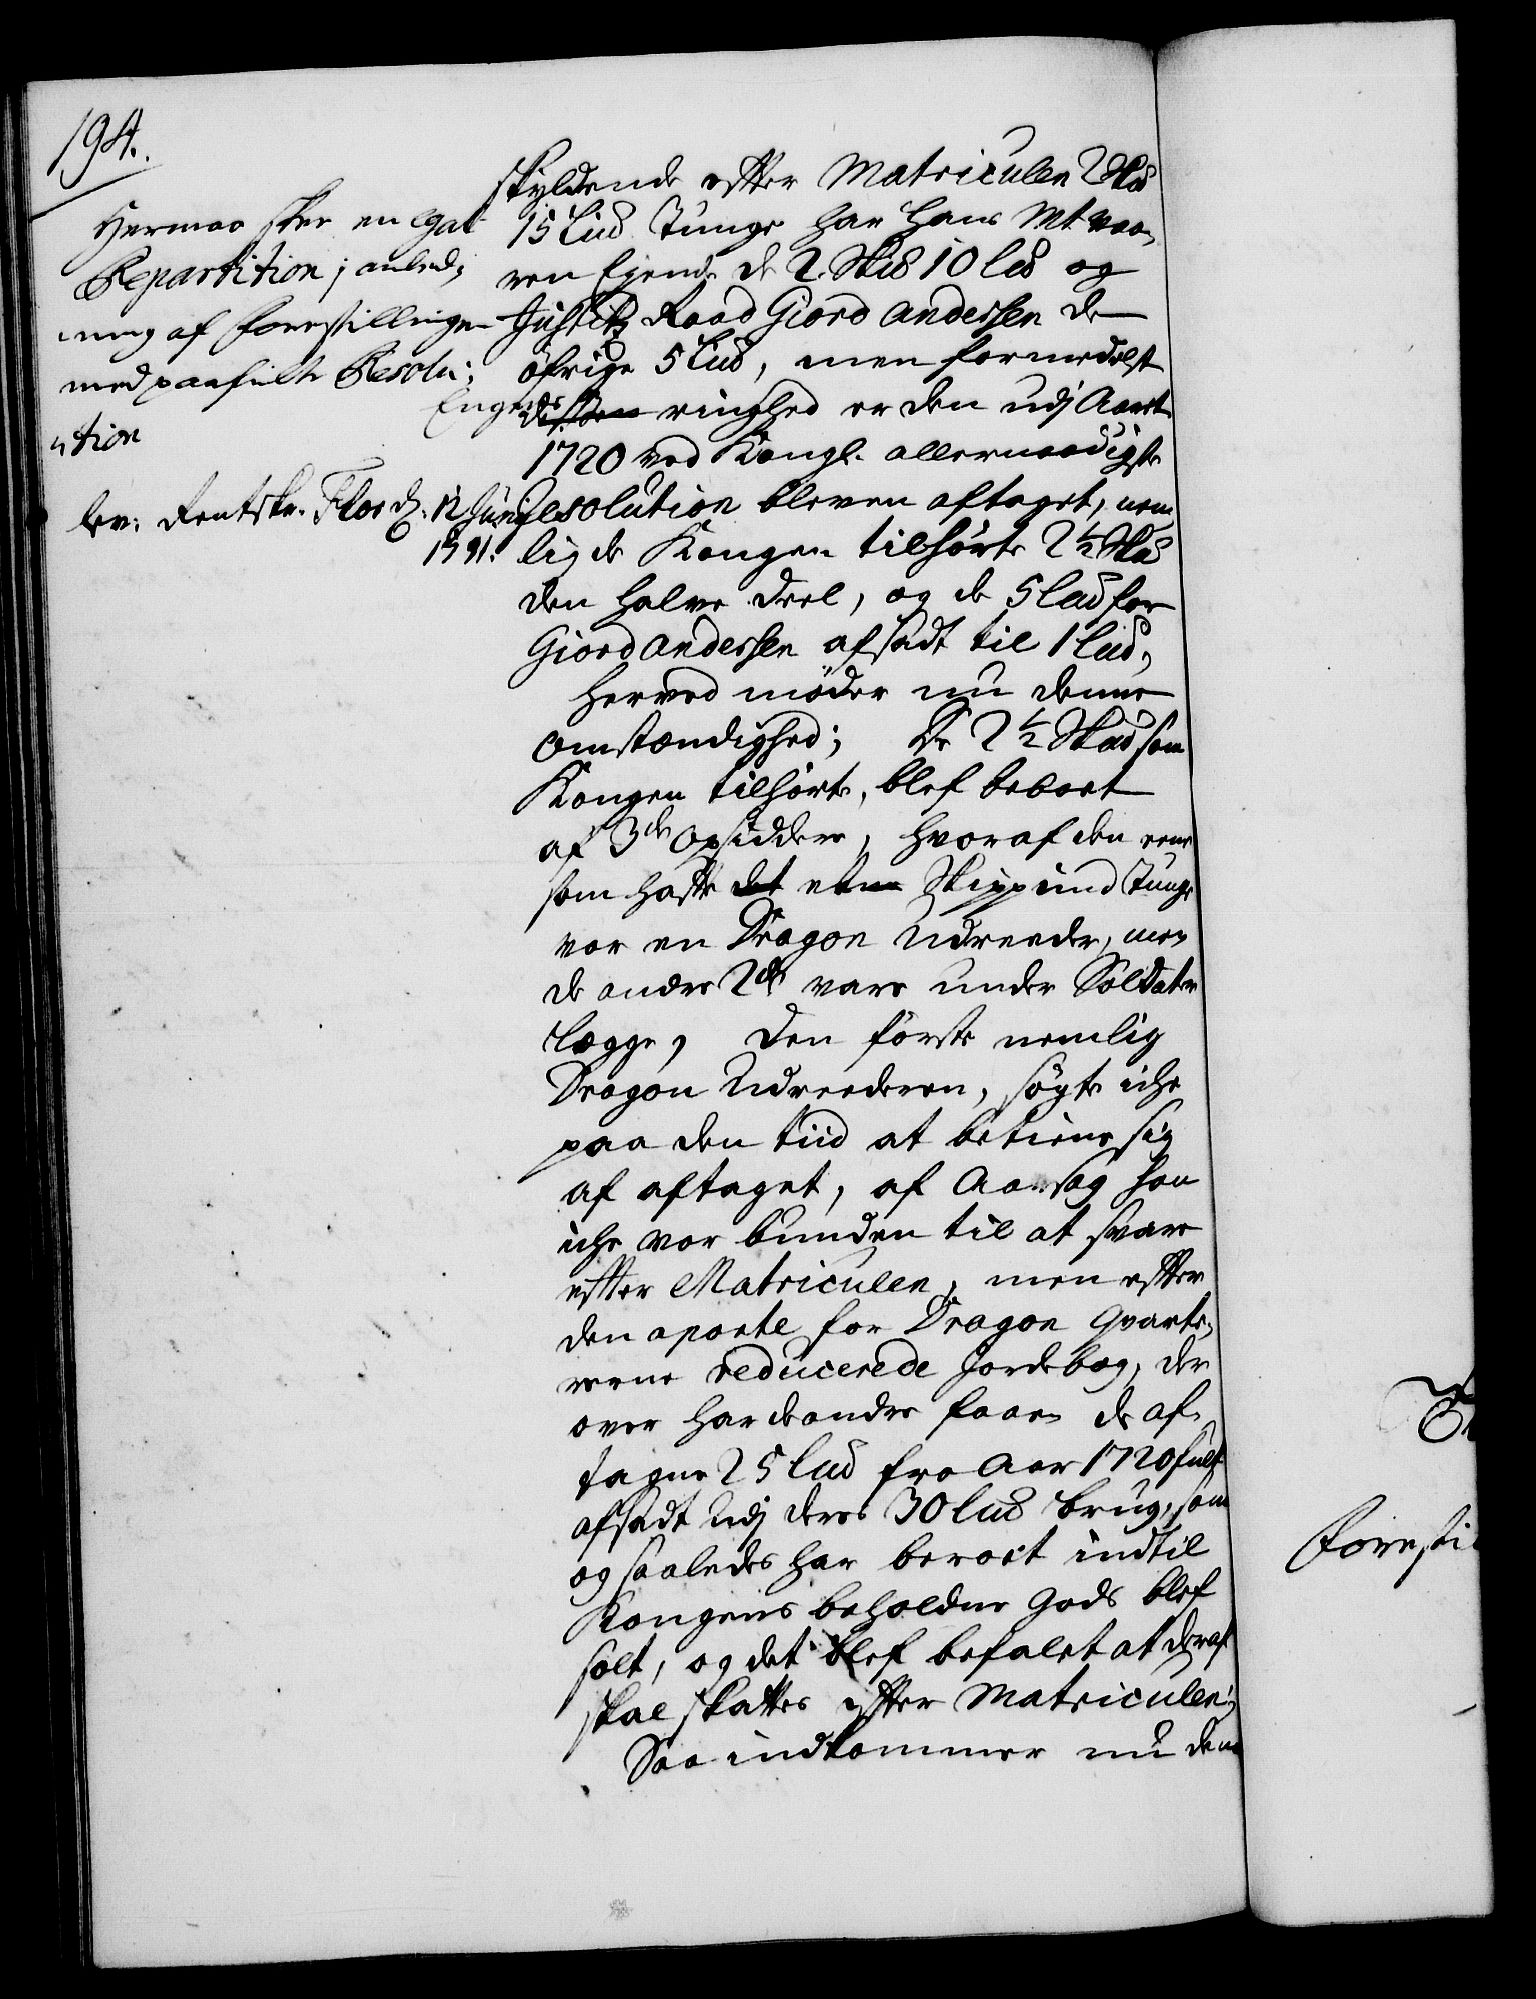 194.
Hermaa skee en Egal
Repartition j anled,
ning af forestillingen
med paafulte Resolu,
tion
lev: Rentskr. Flor d. 12 Junj
1741.
skyldende efter Matriculen 2 Skd
15 Lud Tunge har Hans Mt væ,
ren Ejende de 2. Skd 10 lud og
Justitz Raad Giord Andersen de
öfrige 5 Lud, men formedelst
Engens
dessen ringhed er den udj Aaret
1720 ved Kongl. allernaadigste
Resolution bleven aftaget, nem
lig de Kongen tilhørte 2 ½ Skd
den halve deel, og de 5 lud for
Giord Andersen afsadt til 1 lud,
herved møder nu denne
omstændighed; De 2 ½ Skd som
Kongen tilhørte, blef beboet
af 3de opsiddere, hvoraf den eene
som hafte det et Skippund Tunge
var en Dragon Udreeder, men
de andre 2de vare under Soldater
Lægge, den første nemlig
Dragon Udreederen, søgte iche
paa den tiid at betiene sig
af aftaget, af Aarsag han
iche var bunden til at svare
efter Matriculen, men efter
den aparte for Dragon qvarte,
rerne reducerede Jordebog, der
over har de andre faaen de af,
tagne 25 lud fra Aar 1720 fult
afsadt udj deres 30 lud brug, som
og saaledes har beroet indtil
Kongens beholdne Gods blef
solt, og det blef befalet at deraf
skal skattes efter Matriculen;
Saa indkommer nu den
Foresti